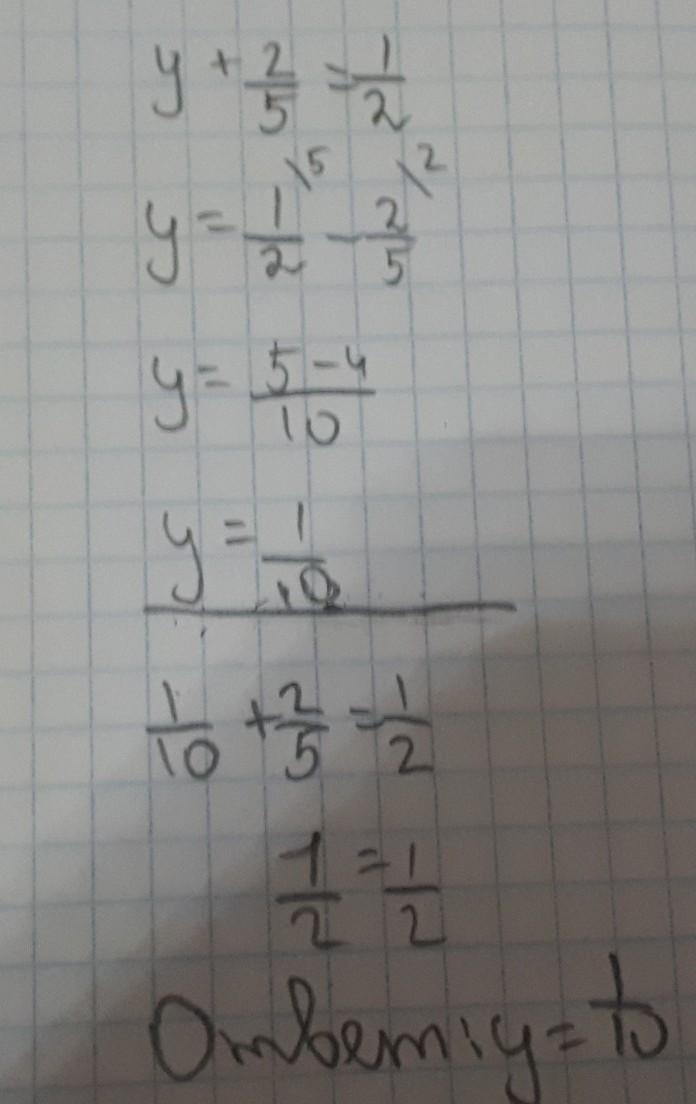 y + 2/5 = 1/2
y = 1/2 \5 - 2/5 \2
y = 5-4/10
y = 1/10
1/10 + 2/5 = 1/2
1/2 = 1/2
Ответ: y = 1/10